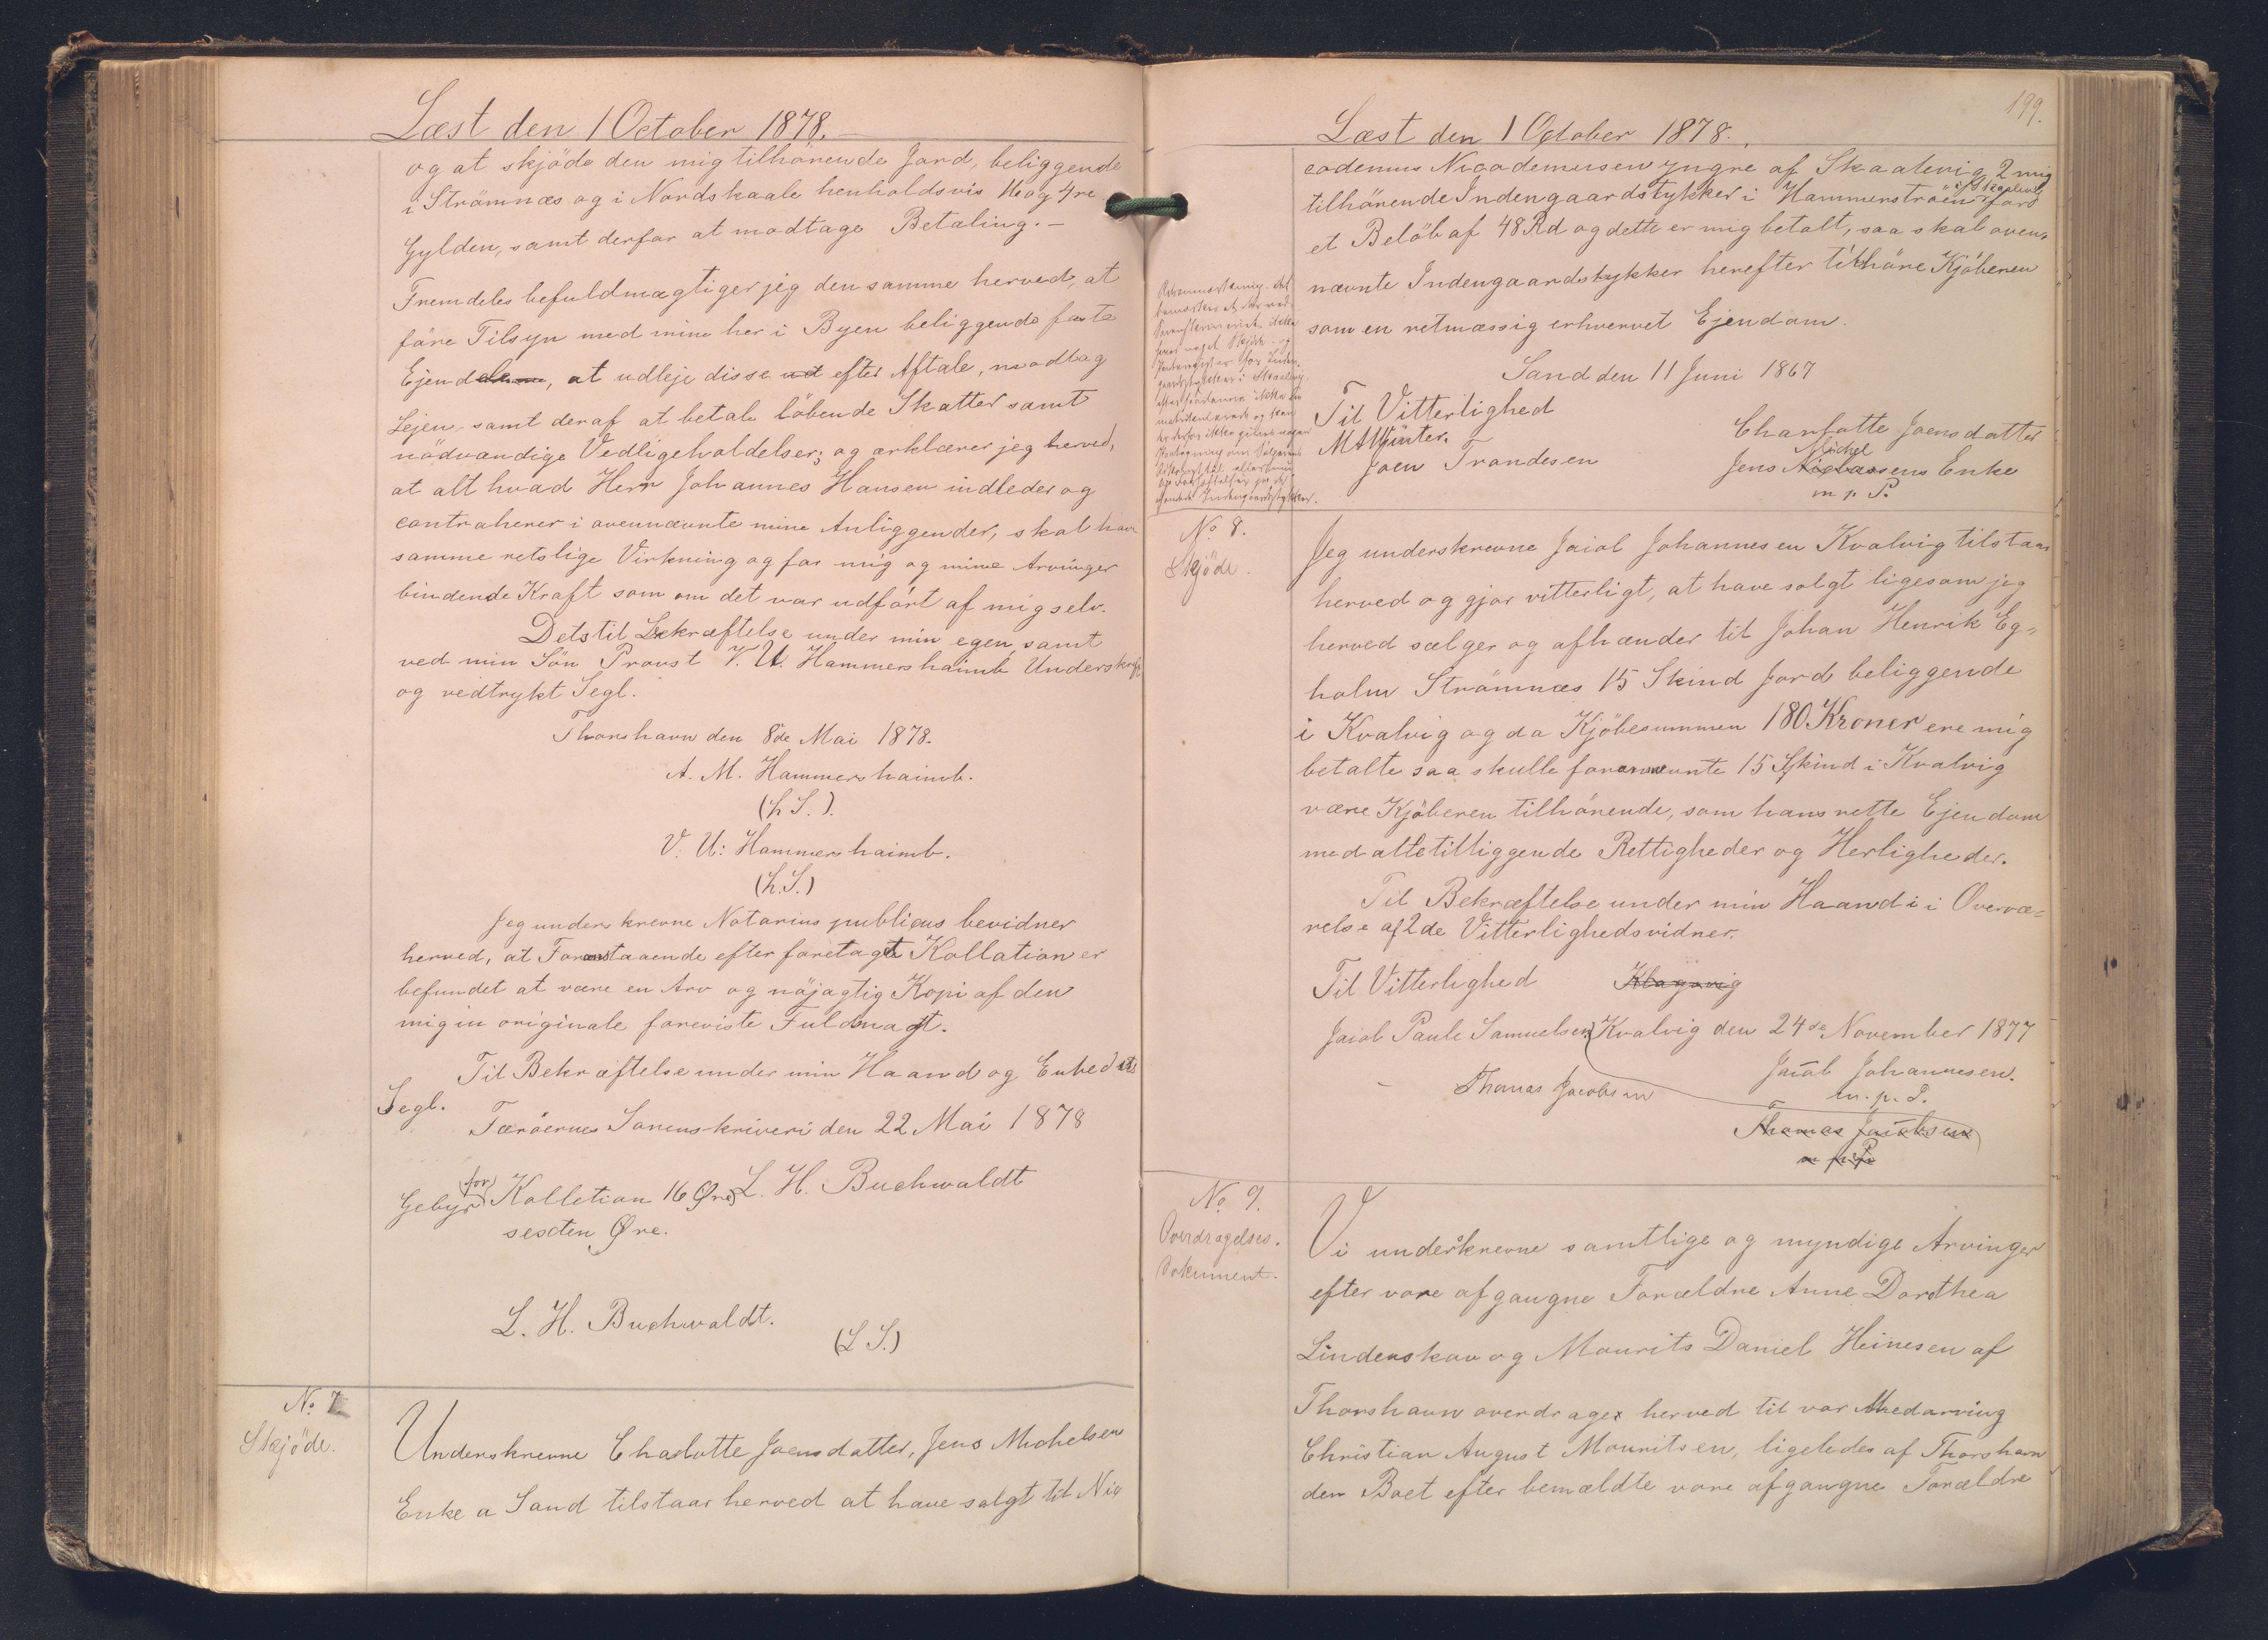 Læst den 1 October 1878.
og at skjöde den mig tilhörende Jord, beliggende
i Strömnæs og i Nordskaale henholdsvis 16 og 4re
Gylden, samt derfor at modtage Betaling.-
Fremdeles befuldmægtiger jeg den samme herved, at
före Tilsyn med mine her i Byen beliggende faste
Ejendele, at udleje disse ud efter Aftale, modtag
Lejen, samt deraf at betale löbende Skatter samt
nödvændige Vedligeholdelser; og erklærer jeg herved,
at alt hvad Herr Johannes Hansen indleder og
contraherer i ovennævnte mine Anliggender, skal have
samme retslige Virkning og for mig og mine Arvinger
bindende Kraft som om det var udfört af mig selv.
Dets til Bekræftelse under min egen samt
ved min Sön Provst V. U. Hammershaimb Underskrift
og vedtrykt Segl.
Thorshavn den 8de Mai 1878.
A. M. Hammershaimb.
(L.S.).
V. U. Hammershaimb.
(L.S.)
Jeg underskrevne Notarius publicus bevidner
herved, at Foranstaaende efter foretaget Kollation er
befundet at være en tro og nöjagtig Kopi af den
mig in originale foreviste Fuldmagt.
Til Bekræftelse under min Haand og Embeds
Segl.
Færöernes Sorenskriveri den 22 Mai 1878
Gebyr for Kolletion 16 Øre L. H. Buchwaldt
sexten Øre.
L. H. Buchwaldt.
(L S.)
No. 7
Skjöde.
Underskrevne Charlotte Joensdatter, Jens Michelsen
Enke a Sand tilstaar herved at have solgt til Nic
199.
Læst den 1 October 1878.
codemus Nicodemusen yngre af Skaalevig 2 mig
tilhörende Indengaardstykker i Hammerströen i Skaalevig for
et Belöb af 48 Rd og dette er mig betalt, saa skal oven-
nævnte Indengaardstykker herefter tilhöre Kjöberen
som en retmæssig erhvervet Ejendom.
Sand den 11 Juni 1867
Til Vitterlighed
M A Winter.
Joen Trondesen
Charlotte Joensdatter
Jens Michelsens Enke
m p P.
No 8.
Skjöde.
Jeg underskrevne Jaiob Johannesen Kvalvig tilstaar
herved og gjör vitterligt, at have solgt ligesom jeg
herved sælger og afhænder til Johan Henrik Eg-
holm Strömnæs 15 Skind Jord beliggende
i Kvalvig og da Kjöbesummen 180 Kroner ere mig
betalte saa skulle forannævnte 15 Skind i Kvalvig
være Kjöberen tilhörende, som hans rette Ejendom
med alle tilliggende Rettigheder og Herligheder.
Til Bekræftelse under min Haand i i Overvæ-
relse af 2de Vitterlighedsvidner.
Til Vitterlighed
Jaiob Paule Samuelsen Kvalvig den 24de November 1877
Thomas Jacobsen
Jaiob Johannesen.
m. p. P.
Thomas Jaiobsen
m p P
No. 9.
Overdragelses-
Dokument.
Vi underskrevne samtlige og myndige Arvinger
efter vore afgangne Forældre Anne Dorthea
Lindenskov og Mourits Daniel Heinesen af
Thorshavn overdrager herved til vor Medarving
Christian August Mouritsen, ligeledes af Thorshavn
den Boet efter bemældte vore afgangne Forældre